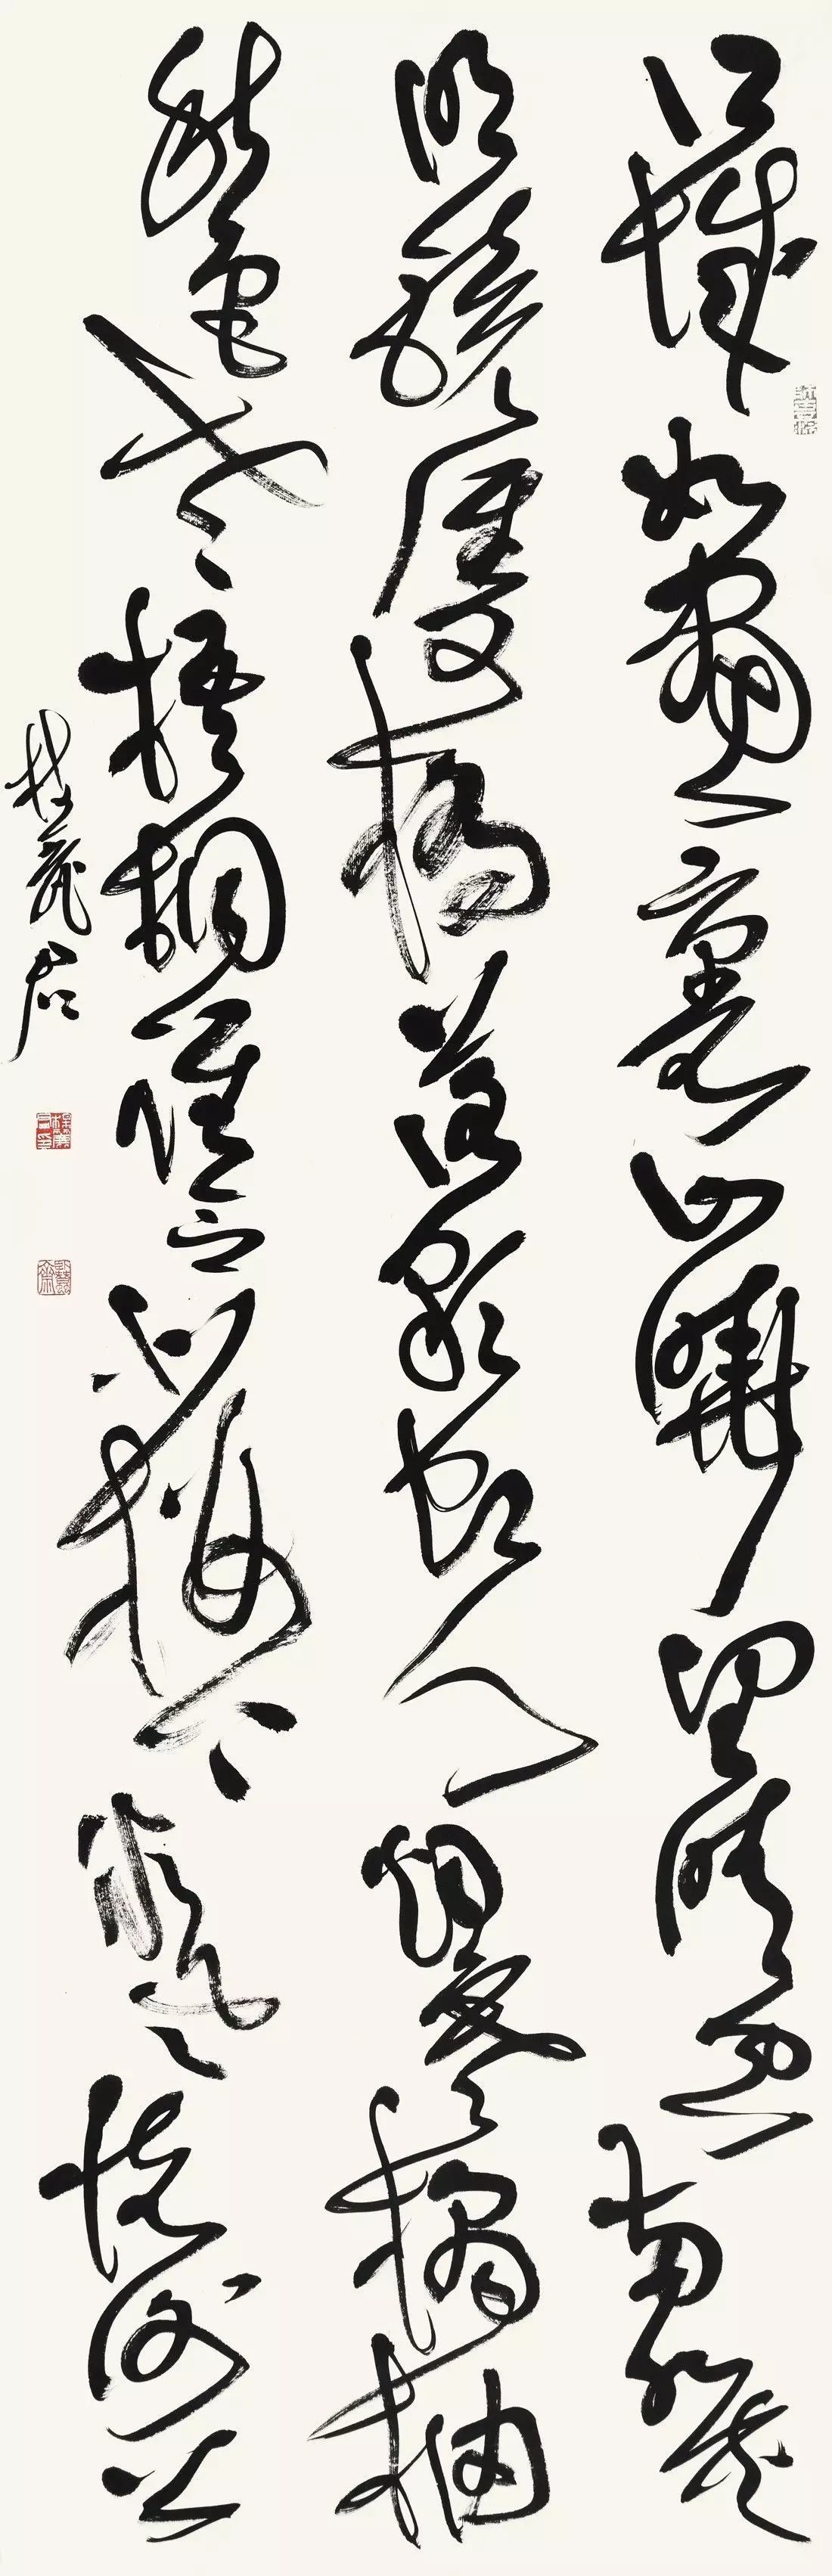 江城如画里山晓望晴空两水夹
明镜双桥落彩虹人烟寒橘柚
秋色老梧桐谁念北楼上临风怀谢公